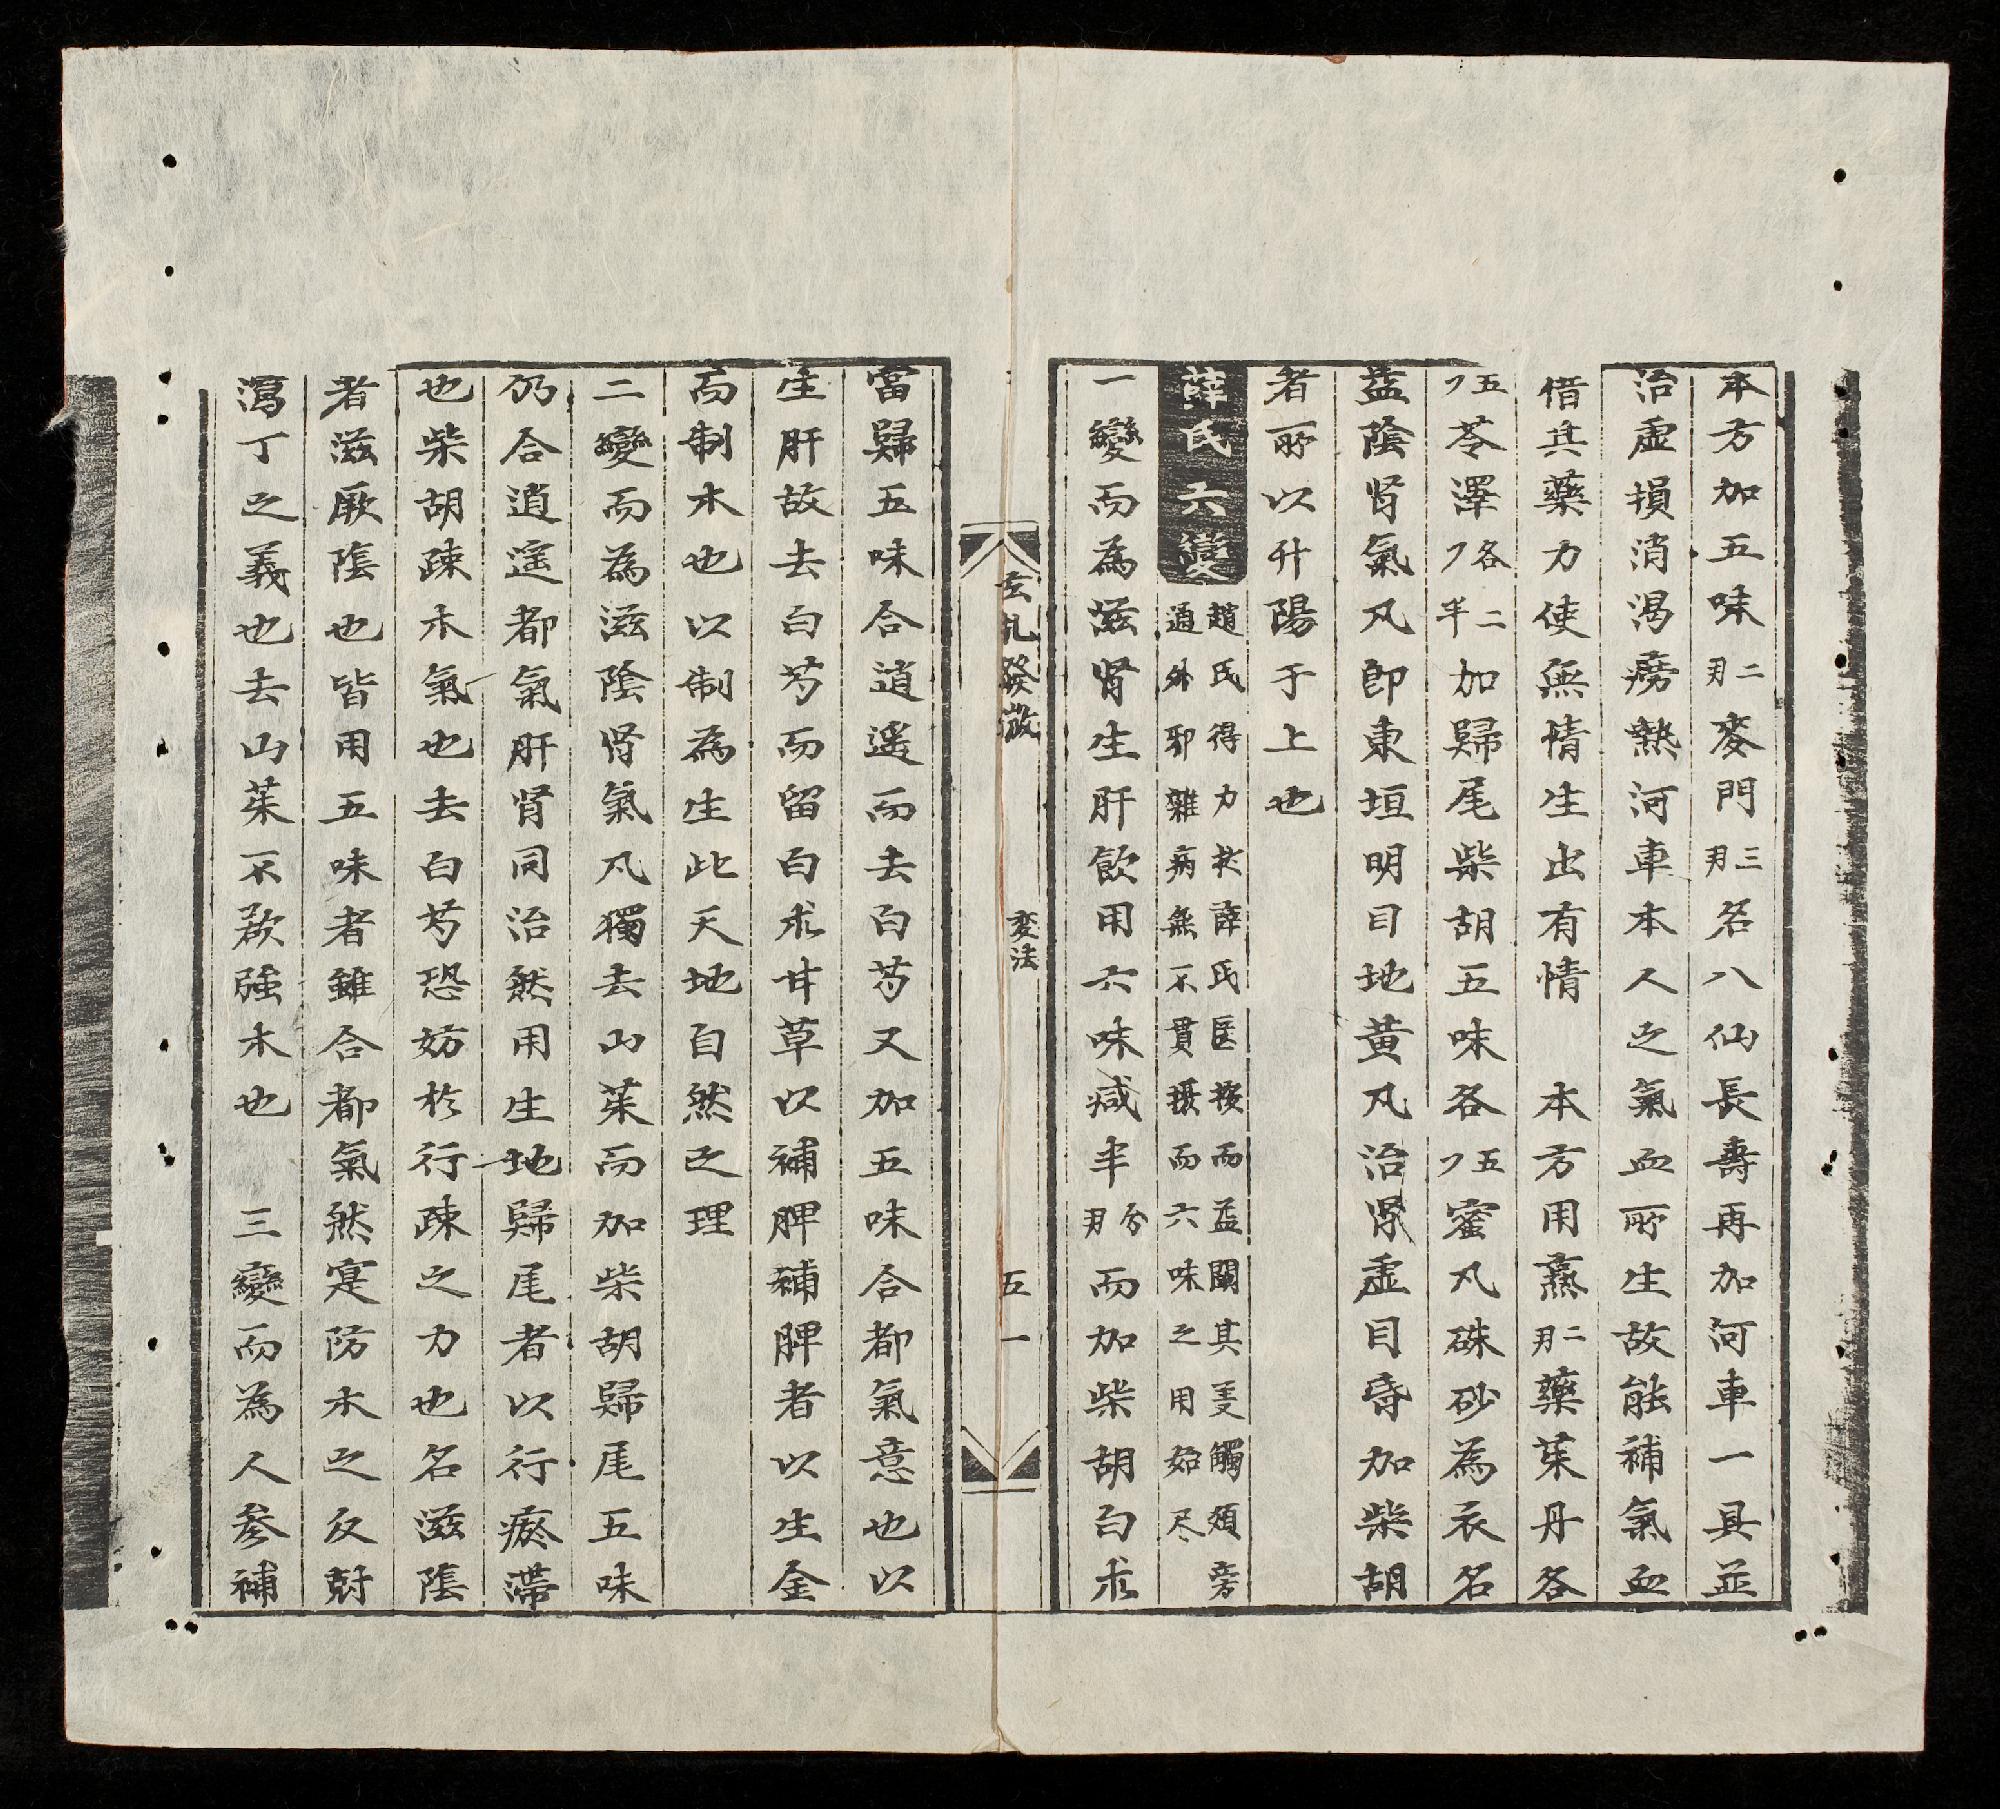 本方加五味二刃麥門三刃名八仙長壽再加河車一具並
治虛損消渴癆熱河車本人之氣血所生故能補氣血
借其藥力使無情生出有情　本方用熟二刃藥茱丹各
五刀苓澤各二刀半加歸尾柴胡五味各五刀蜜凡硃砂為衣名
益陰腎氣凡即東垣明目地黃凡治腎虛目昏加柴胡
者所以升陽于上也
薛氏六變
趙氏得力於薛氏医按而益闡其美觸類旁
通外邪雜病無不貫摄而六味之用始尽
一變而為滋腎生肝飲用六味减半分刃而加柴胡白朮
玄札發微　变法　五一
當歸五味合逍遥而去白芍又加五味合都氣意也以
生肝故去白芍而留白朮甘草以補脾補脾者以生金
而制木也以制為生此天地自然之理
二變而為滋陰腎氣凡獨去山茱而加柴胡歸尾五味
仍合逍遥都氣肝腎同治然用生地歸尾者以行瘀滯
也柴胡疎木氣也去白芍恐妨於行疎之力也名滋陰
者滋厥陰也皆用五味者雖合都氣然寔防木之反尅
瀉丁之義也去山茱不欲強木也　三變而為人參補